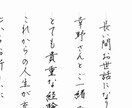 長い間お世話になり
幸野さんとご一緒
とても貴重な経験
これからの人生が